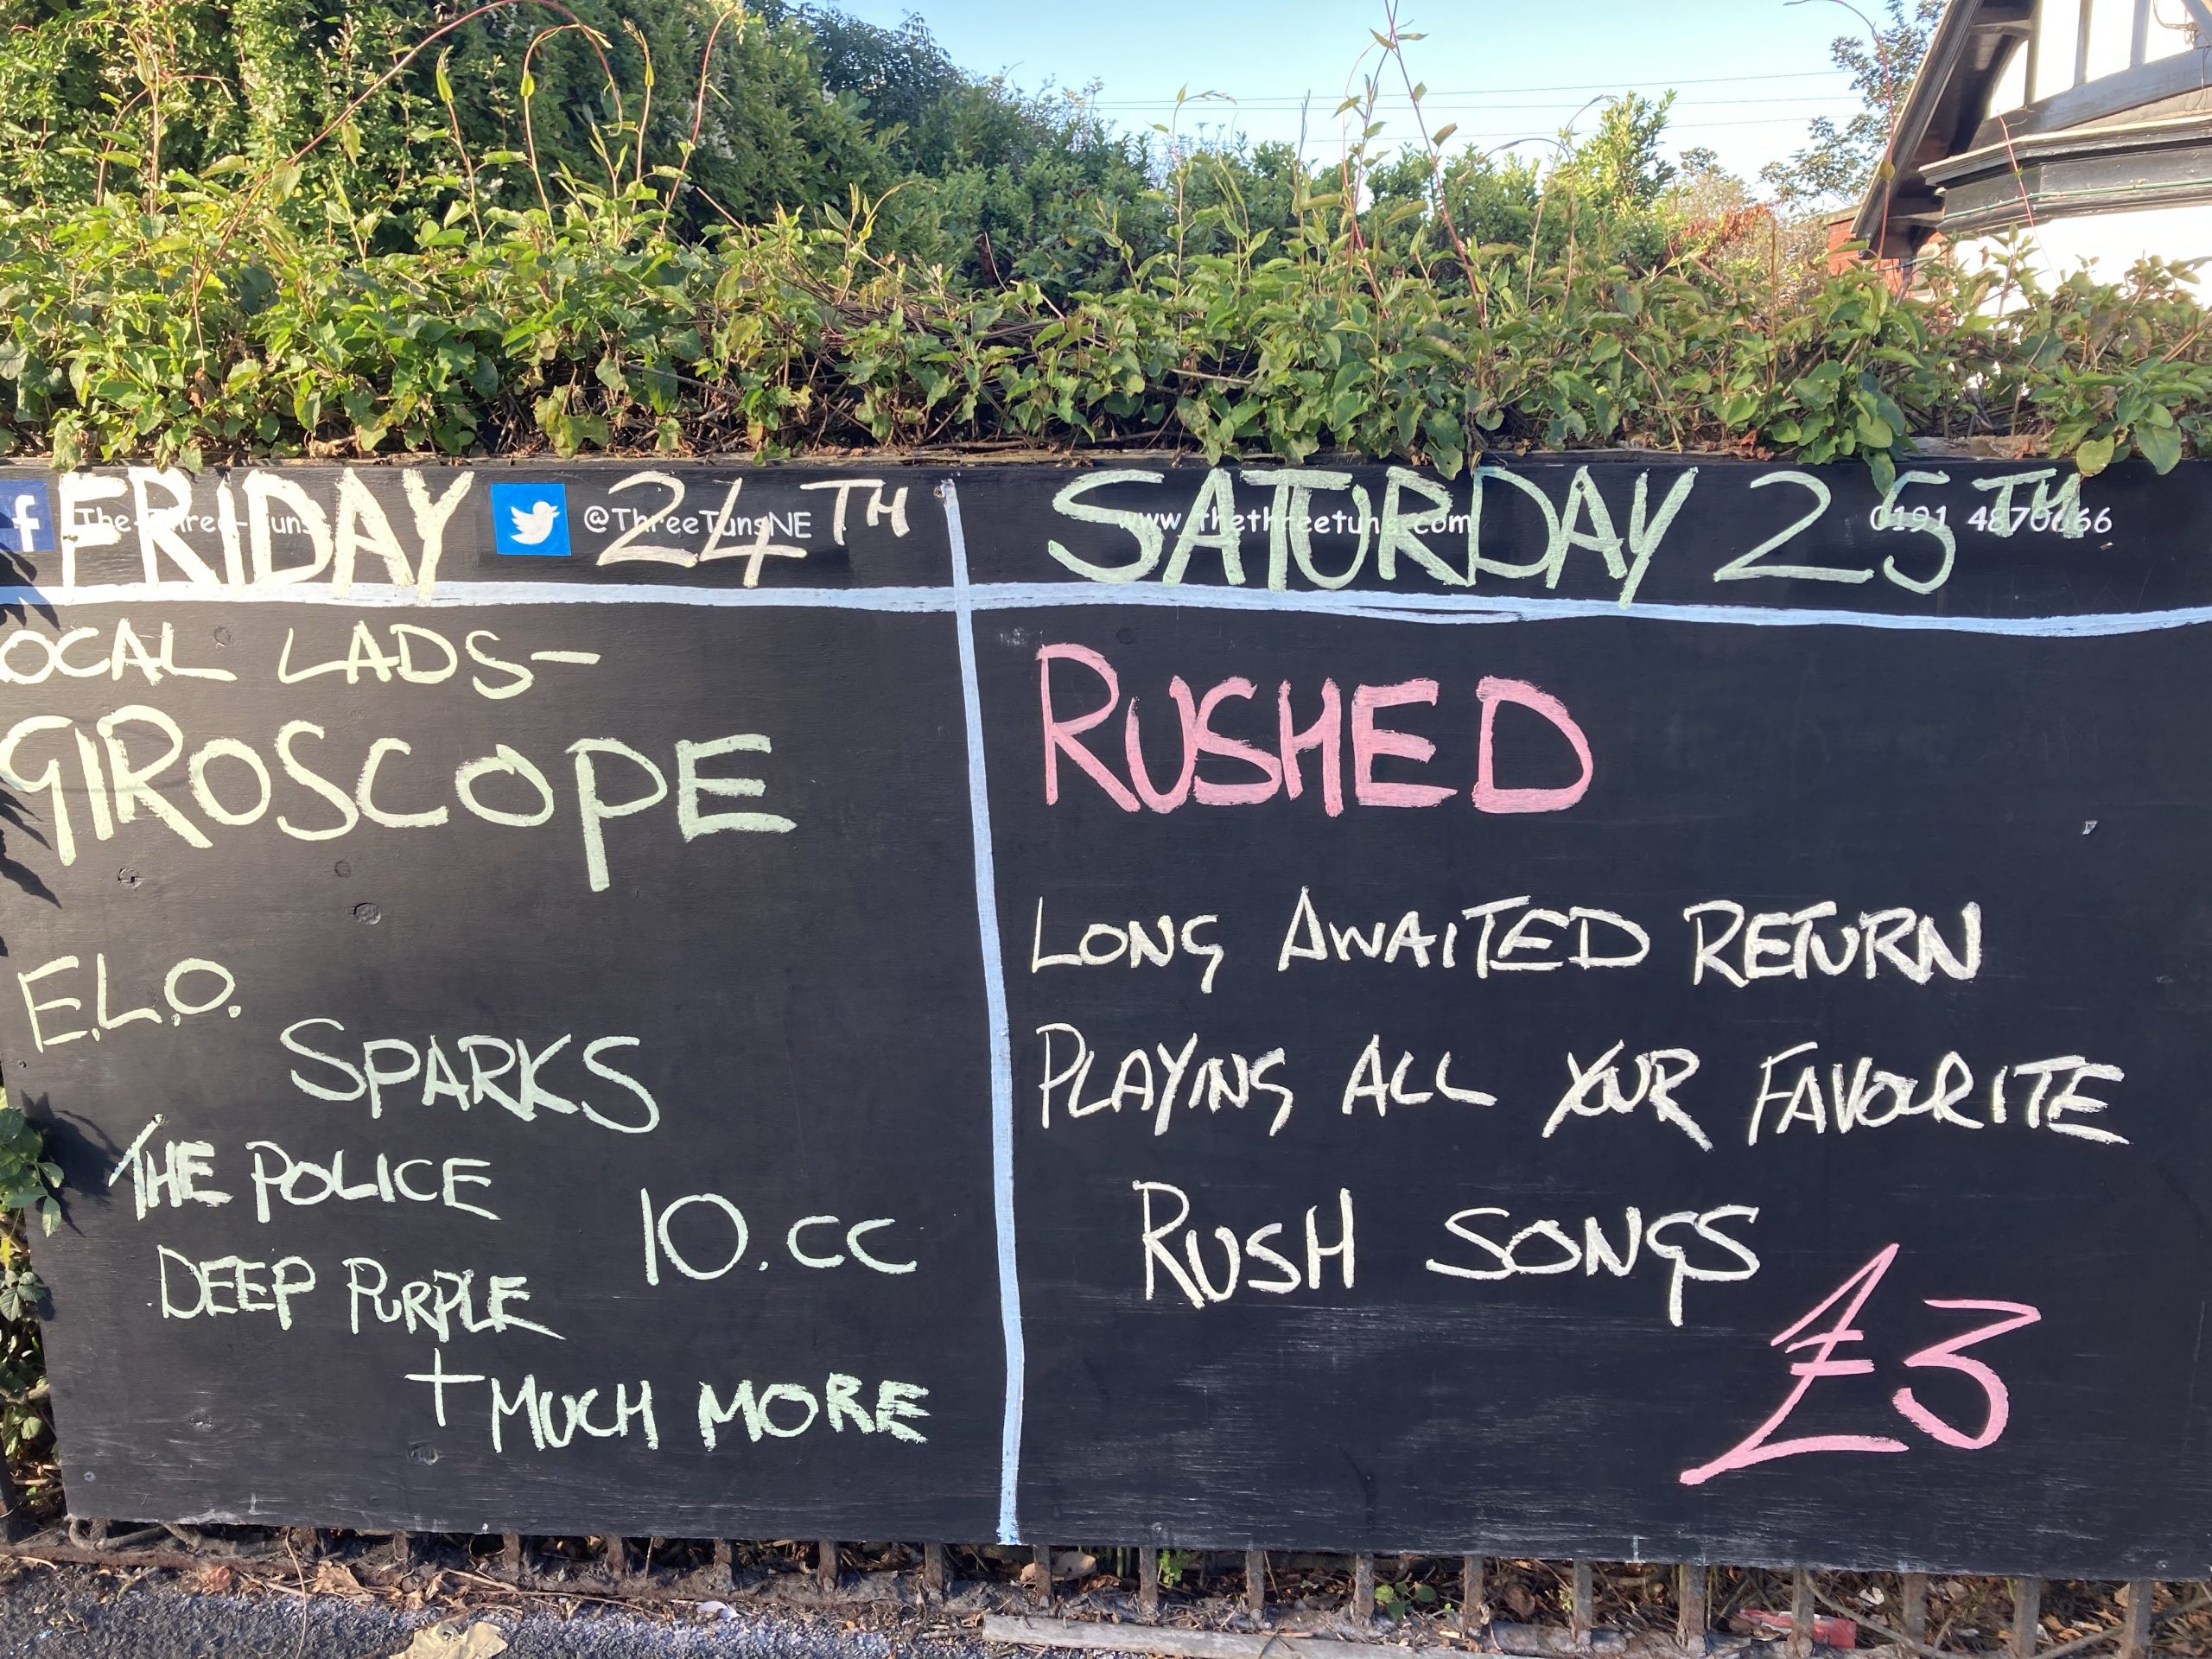 The-Three-Tuns
@ThreeTunsNE
www.thethreetuns.com
0191 4870666
FRIDAY 24TH
OCAL LADS-
GIROSCOPE
E.L.O.
SPARKS
THE POLICE
10.CC
DEEP PURPLE
+ MUCH MORE
SATURDAY 25TH
RUSHED
LONG AWAITED RETURN
PLAYING ALL YOUR FAVOURITE
RUSH SONGS
£3